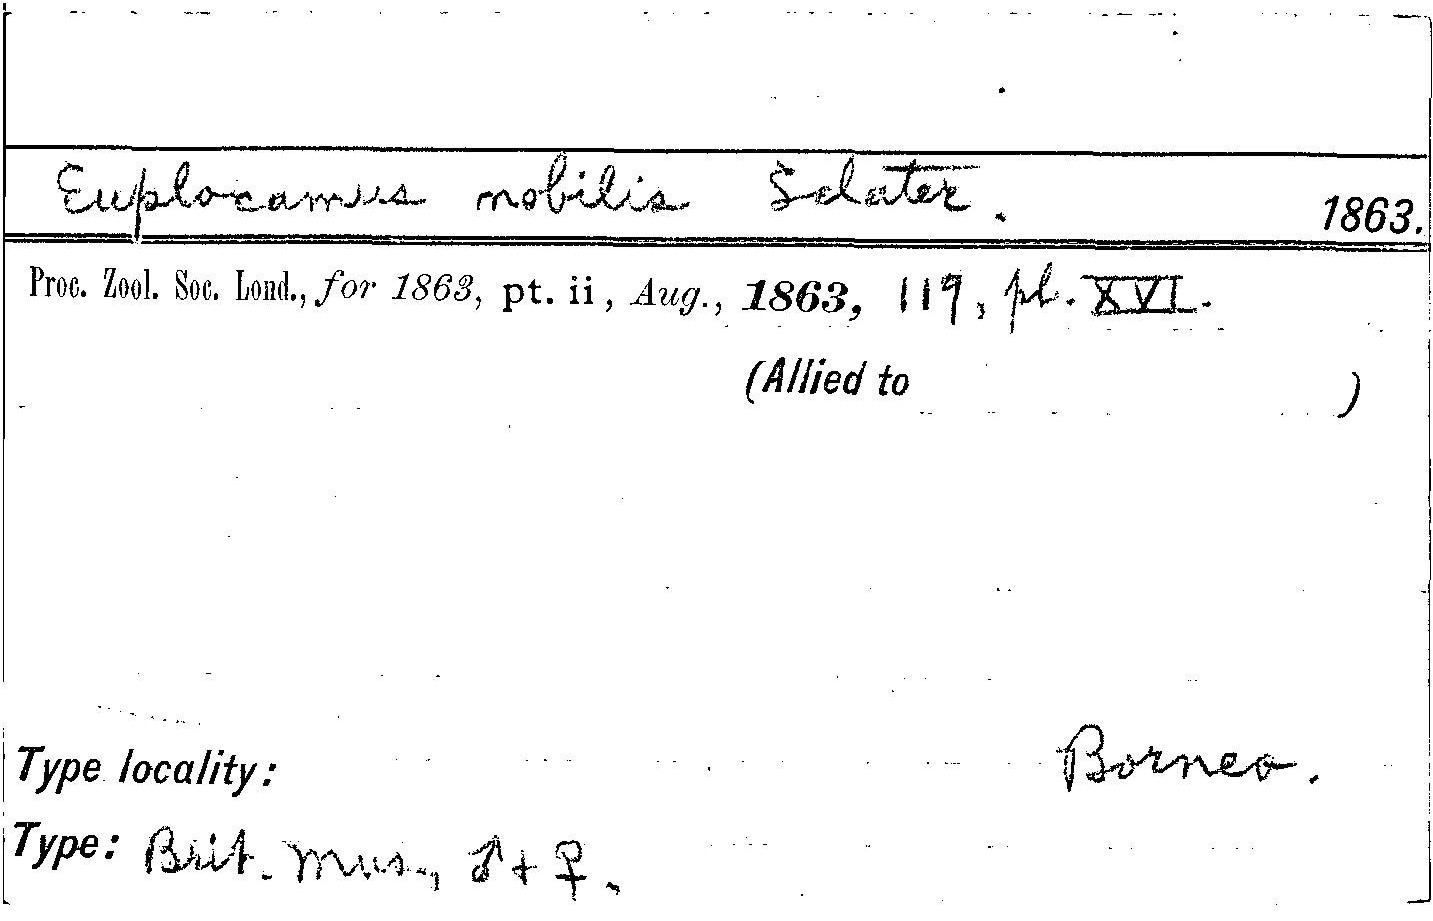 Euplocamus nobilis Sclater. 1863.
Proc. Zool. Soc. Lond., for 1863, pt. ii, Aug., 1863, 119, pl. XVI.
(Allied to )
Type locality: Borneo.
Type: Brit. Mus., ♂ + ♀.